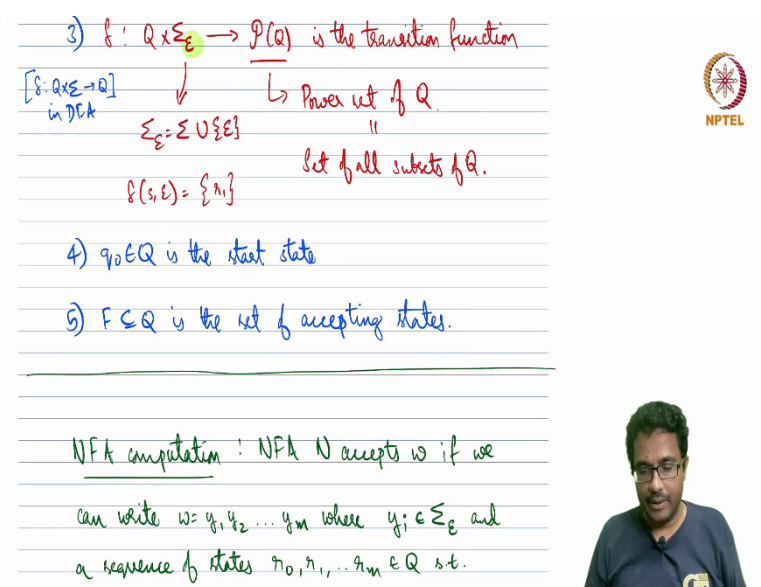 3) δ : Q×Σ_ε → P(Q) is the transition function
[δ: Q×Σ→Q]
in DFA
↳ Power set of Q.
Σ_ε = Σ ∪ {ε}
"
Set of all subsets of Q.
δ(s, ε) = {r₁}
4) q₀ ∈ Q is the start state
5) F ⊆ Q is the set of accepting states.
NFA computation : NFA N accepts w if we
can write w = y₁ y₂ ... yₘ where yᵢ ∈ Σ_ε and
a sequence of states r₀, r₁, .. rₘ ∈ Q s.t.
NPTEL